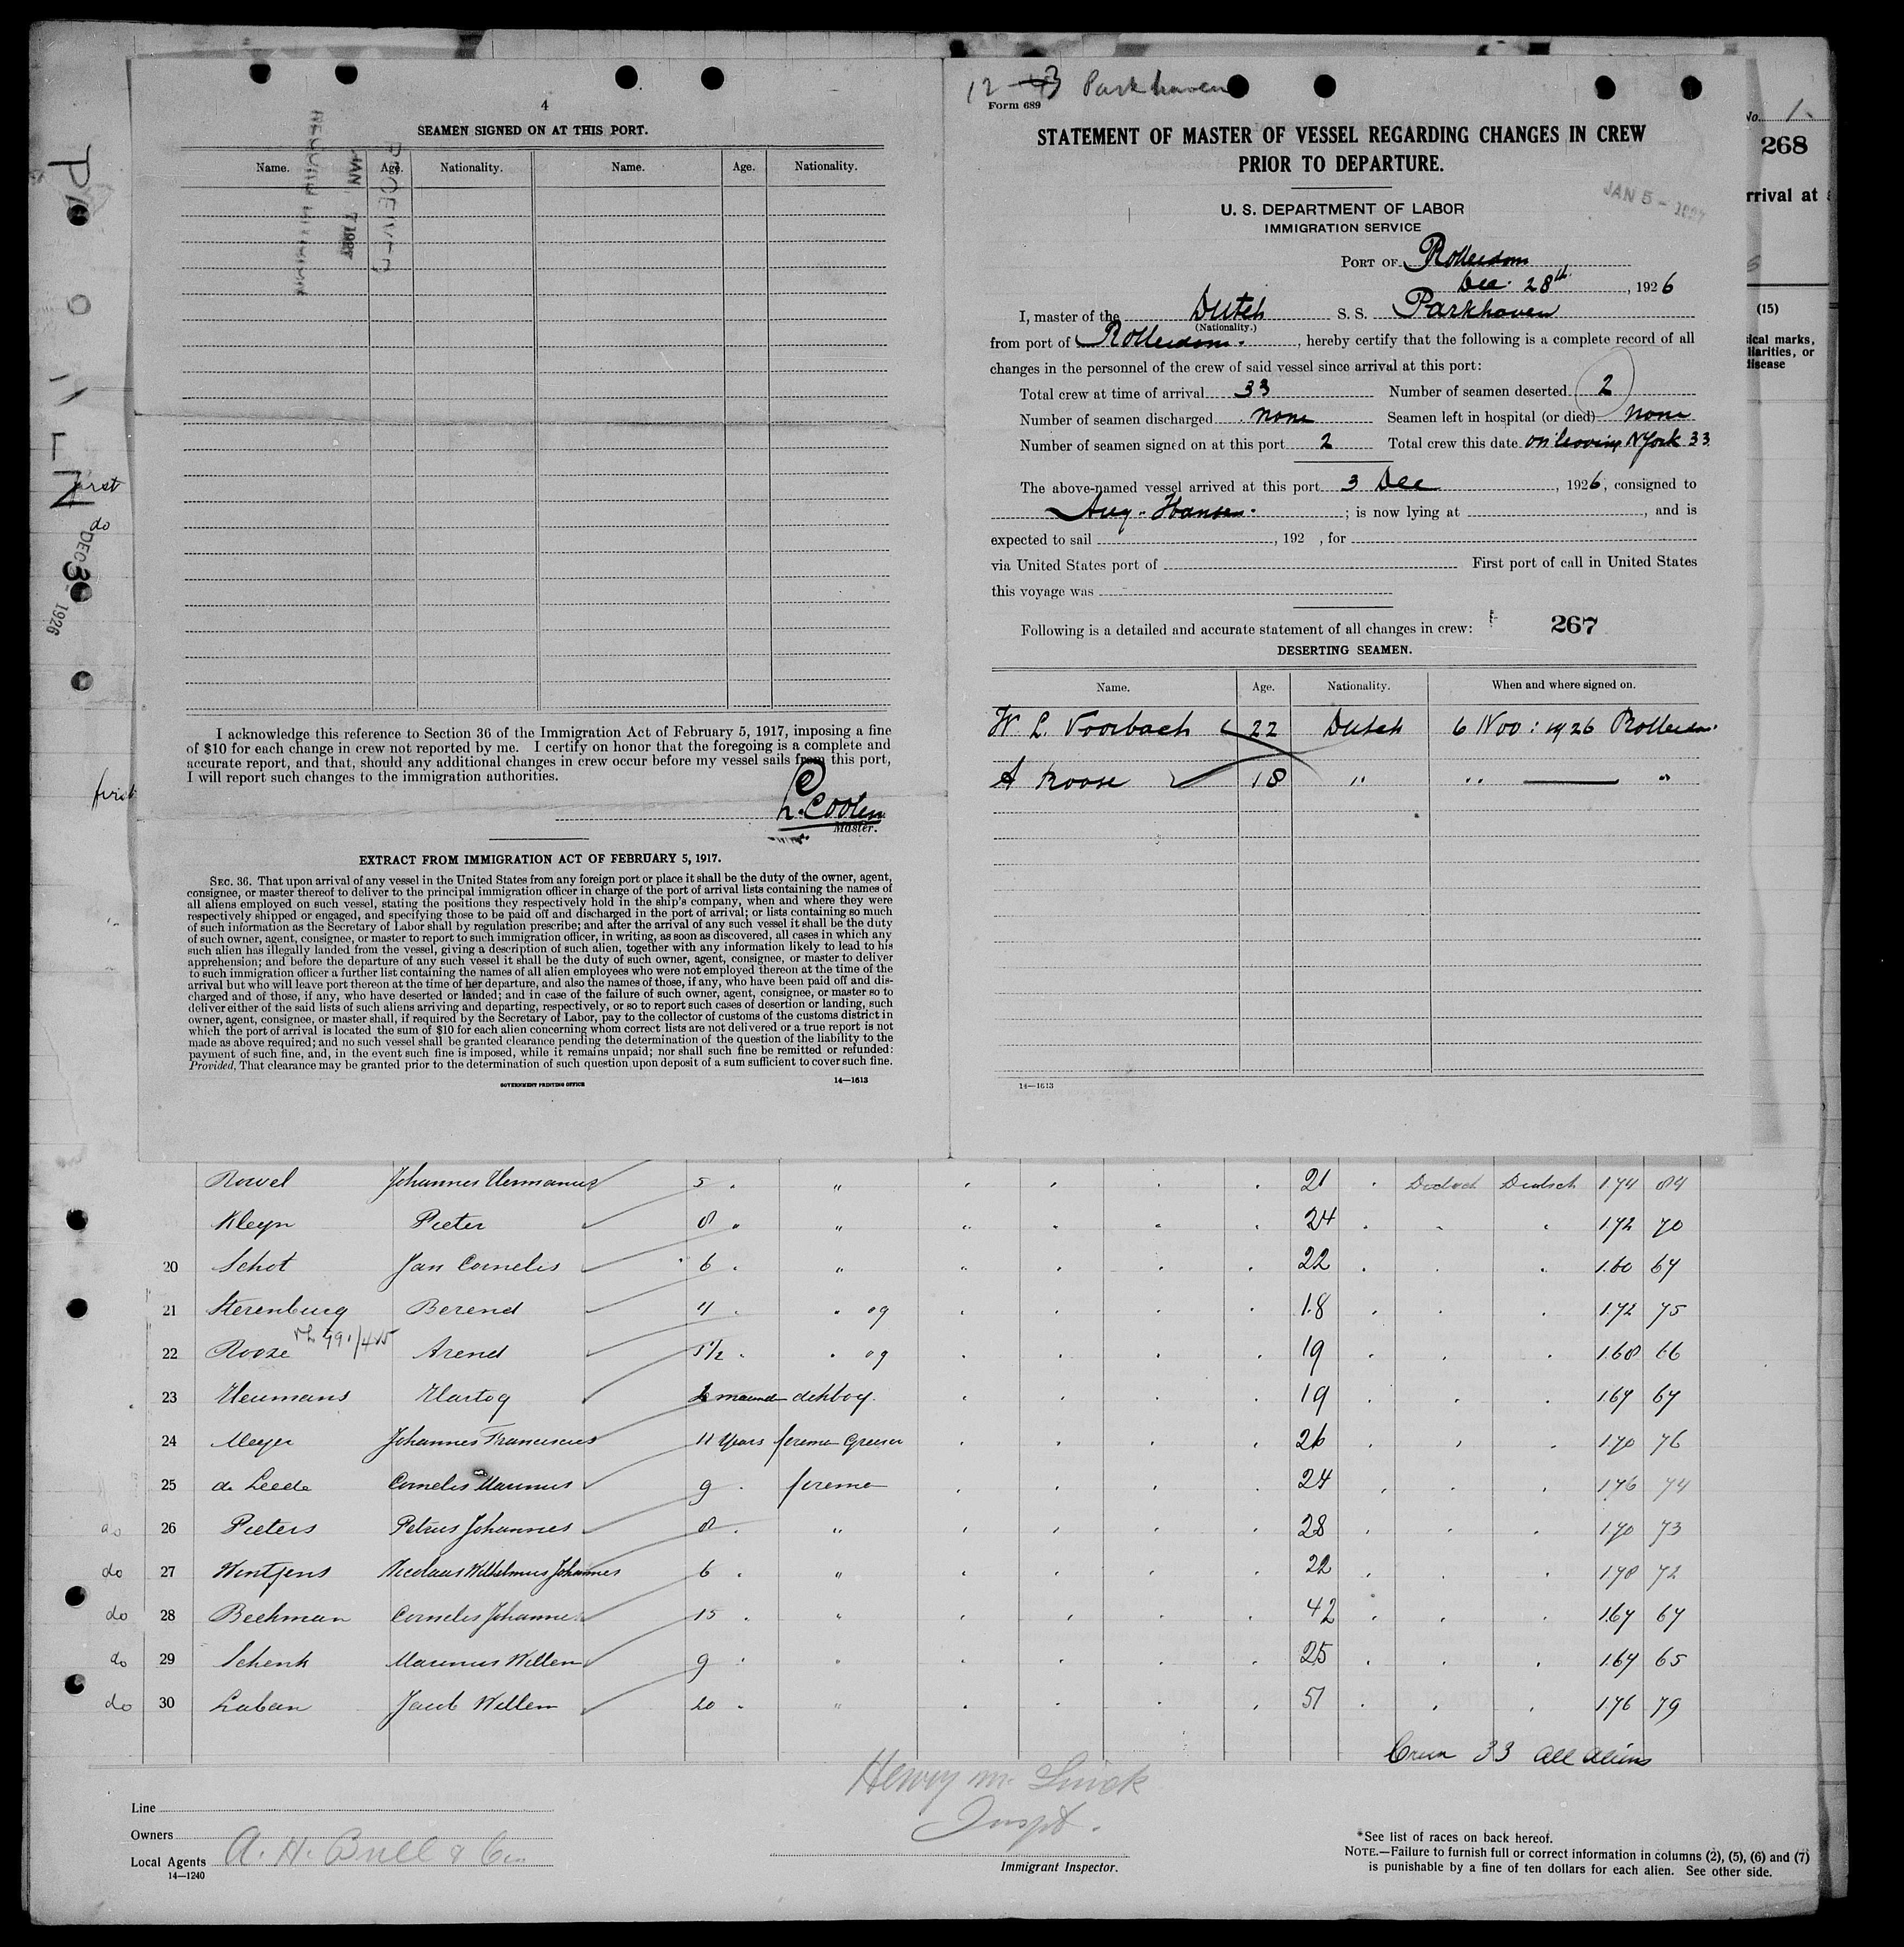 4
SEAMEN SIGNED ON AT THIS PORT.
Name. Age. Nationality. Name. Age. Nationality.
RECEIVED
JAN 7 1927
I acknowledge this reference to Section 36 of the Immigration Act of February 5, 1917, imposing a fine
of $10 for each change in crew not reported by me. I certify on honor that the foregoing is a complete and
accurate report, and that, should any additional changes in crew occur before my vessel sails from this port,
I will report such changes to the immigration authorities.
Master.
EXTRACT FROM IMMIGRATION ACT OF FEBRUARY 5, 1917.
SEC. 36. That upon arrival of any vessel in the United States from any foreign port or place it shall be the duty of the owner, agent,
consignee, or master thereof to deliver to the principal immigration officer in charge of the port of arrival lists containing the names of
all aliens employed on such vessel, stating the positions they respectively hold in the ship's company, when and where they were
respectively shipped or engaged, and specifying those to be paid off and discharged in the port of arrival; or lists containing so much
of such information as the Secretary of Labor shall by regulation prescribe; and after the arrival of any such vessel it shall be the duty
of such owner, agent, consignee, or master to report to such immigration officer, in writing, as soon as discovered, all cases in which any
such alien has illegally landed from the vessel, giving a description of such alien, together with any information likely to lead to his
apprehension; and before the departure of any such vessel it shall be the duty of such owner, agent, consignee, or master to deliver
to such immigration officer a further list containing the names of all alien employees who were not employed thereon at the time of the
arrival but who will leave port thereon at the time of her departure, and also the names of those, if any, who have been paid off and dis-
charged and of those, if any, who have deserted or landed; and in case of the failure of such owner, agent, consignee, or master so to
deliver either of the said lists of such aliens arriving and departing, respectively, or so to report such cases of desertion or landing, such
owner, agent, consignee, or master shall, if required by the Secretary of Labor, pay to the collector of customs of the customs district in
which the port of arrival is located the sum of $10 for each alien concerning whom correct lists are not delivered or a true report is not
made as above required; and no such vessel shall be granted clearance pending the determination of the question of the liability to the
payment of such fine, and, in the event such fine is imposed, while it remains unpaid; nor shall such fine be remitted or refunded:
Provided, That clearance may be granted prior to the determination of such question upon deposit of a sum sufficient to cover such fine.
GOVERNMENT PRINTING OFFICE 14—1613
Parkhaven
Form 689
STATEMENT OF MASTER OF VESSEL REGARDING CHANGES IN CREW
PRIOR TO DEPARTURE.
JAN 5 - 1927
U. S. DEPARTMENT OF LABOR
IMMIGRATION SERVICE
PORT OF Rotterdam
Dec. 28th, 1926
I, master of the Dutch S. S. Parkhaven
(Nationality.)
from port of Rotterdam, hereby certify that the following is a complete record of all
changes in the personnel of the crew of said vessel since arrival at this port:
Total crew at time of arrival 33 Number of seamen deserted 2
Number of seamen discharged none Seamen left in hospital (or died) none
Number of seamen signed on at this port 2 Total crew this date on leaving NYork 33
The above-named vessel arrived at this port 3 Dec, 1926, consigned to
Aug. Hansen; is now lying at , and is
expected to sail , 192 , for
via United States port of First port of call in United States
this voyage was
Following is a detailed and accurate statement of all changes in crew: 267
DESERTING SEAMEN.
Name. Age. Nationality. When and where signed on.
W L. Voorbach 22 Dutch 6 Nov: 1926 Rotterdam
A Roose 18 " " "
14—1613
No. 1
268
rrival at
(15)
sical marks,
liarities, or
disease
first
do
DEC 3 1926
first
Rowel Johannes Hermanus 5 " 21 Dutsch Dutsch 174 84
Kleyn Pieter 8 " 24 172 70
20 Schot Jan Cornelis 6 " 22 160 64
21 Sterenburg Berend 4 " og 18 172 75
22 Rooze Arend 1½ " og 19 168 66
23 Heumans Hartog 19 164 64
24 Meyer Johannes Franciscus 11 Years 26 170 76
25 de Leede Cornelis Marinus 9 24 176 74
do 26 Pieters Petrus Johannes 8 " 28 170 73
do 27 Wintjens Nicolaas Wilhelmus Johannes 6 " 22 178 72
do 28 Beekman Cornelis Johannes 15 " 42 164 64
do 29 Schenk Marinus Willem 9 " 25 164 65
do 30 Laban Jacob Willem 20 " 51 176 79
Crew 33 all aliens
Line
Owners
Local Agents A. H. Bull & Co
14—1240
Inspt.
Immigrant Inspector.
*See list of races on back hereof.
NOTE.—Failure to furnish full or correct information in columns (2), (5), (6) and (7)
is punishable by a fine of ten dollars for each alien. See other side.